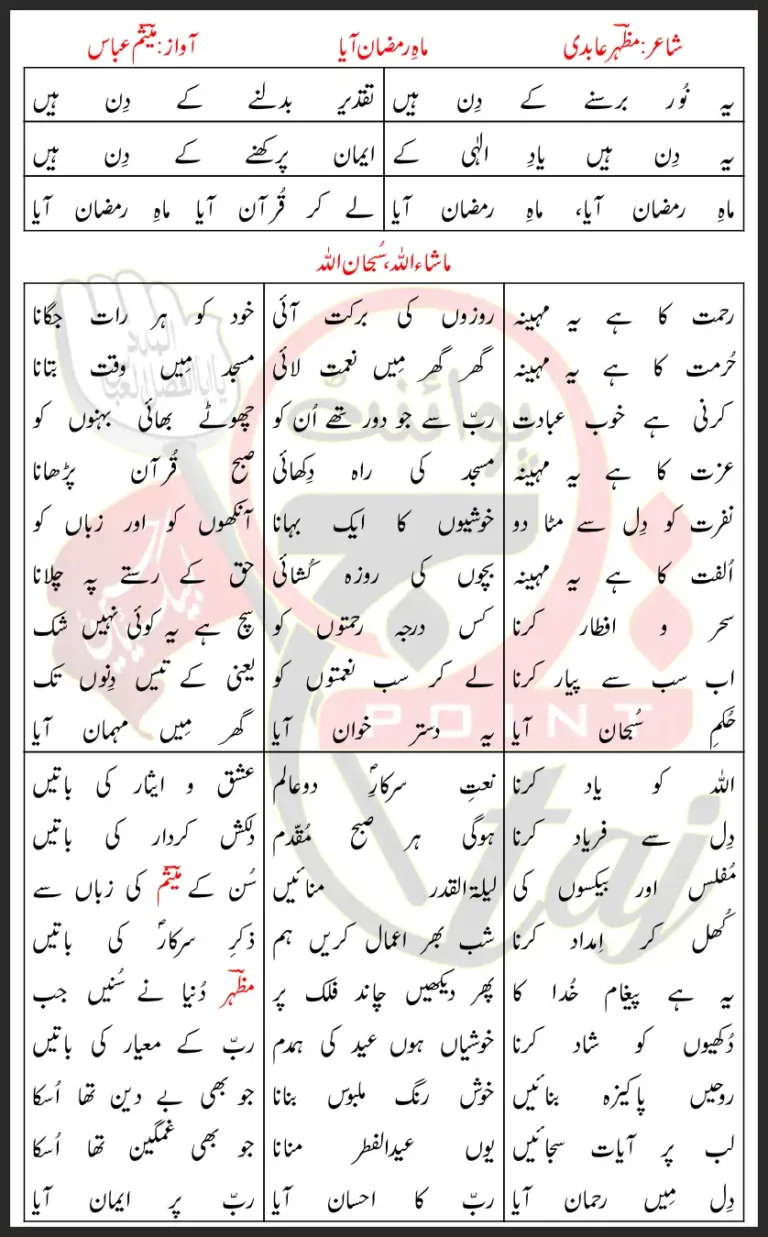 شاعر: مظہرؔ عابدی
ماہِ رمضان آیا
آواز: میثمؔ عباس
یہ نُور برسنے کے دِن ہیں
تقدیر بدلنے کے دِن ہیں
یہ دِن ہیں یادِ الٰہی کے
ایمان پرکھنے کے دِن ہیں
ماہِ رمضان آیا، ماہِ رمضان آیا
لے کر قُرآن آیا ماہِ رمضان آیا
ماشاءاللہ، سُبحان اللہ
رحمت کا ہے یہ مہینہ
حُرمت کا ہے یہ مہینہ
کرنی ہے خوب عبادت
عزت کا ہے یہ مہینہ
نفرت کو دِل سے مٹا دو
اُلفت کا ہے یہ مہینہ
سحر و افطار کرنا
اب سب سے پیار کرنا
حُکمِ سُبحان آیا
روزوں کی برکت آئی
گھر گھر مِیں نعمت لائی
ربّ سے جو دور تھے اُن کو
مسجد کی راہ دِکھائی
خوشیوں کا ایک بہانا
بچوں کی روزہ کُشائی
کس درجہ رحمتوں کو
لے کر سب نعمتوں کو
یہ دستر خوان آیا
خود کو ہر رات جگانا
مسجد مِیں وقت بتانا
چھوٹے بھائی بہنوں کو
صبح قُرآن پڑھانا
آنکھوں کو اور زباں کو
حق کے رستے پہ چلانا
سچ ہے یہ کوئی نہیں شک
یعنی کے تیس دِنوں تک
گھر مِیں مہمان آیا
اللہ کو یاد کرنا
دِل سے فریاد کرنا
مُفلس اور بیکسوں کی
کُھل کر اِمداد کرنا
یہ ہے پیغام خُدا کا
دُکھیوں کو شاد کرنا
روحیں پاکیزہ بنائیں
لب پر آیات سجائیں
دِل مِیں رحمان آیا
نعتِ سرکارِؐ دوعالم
ہوگی ہر صبح مُقدّم
لیلۃ القدر منائیں
شب بھر اعمال کریں ہم
پھر دیکھیں چاند فلک پر
خوشیاں ہوں عید کی ہمدم
خوش رنگ ملبوس بنانا
یوں عیدالفطر منانا
ربّ کا احسان آیا
عشق و ایثار کی باتیں
دلکش کردار کی باتیں
سُن کے میثمؔ کی زباں سے
ذکرِ سرکارؐ کی باتیں
مظہرؔ دُنیا نے سُنیں جب
ربّ کے معیار کی باتیں
جو بھی بے دین تھا اُسکا
جو بھی غمگین تھا اُسکا
ربّ پر ایمان آیا
پوائنٹ
POINT
taj